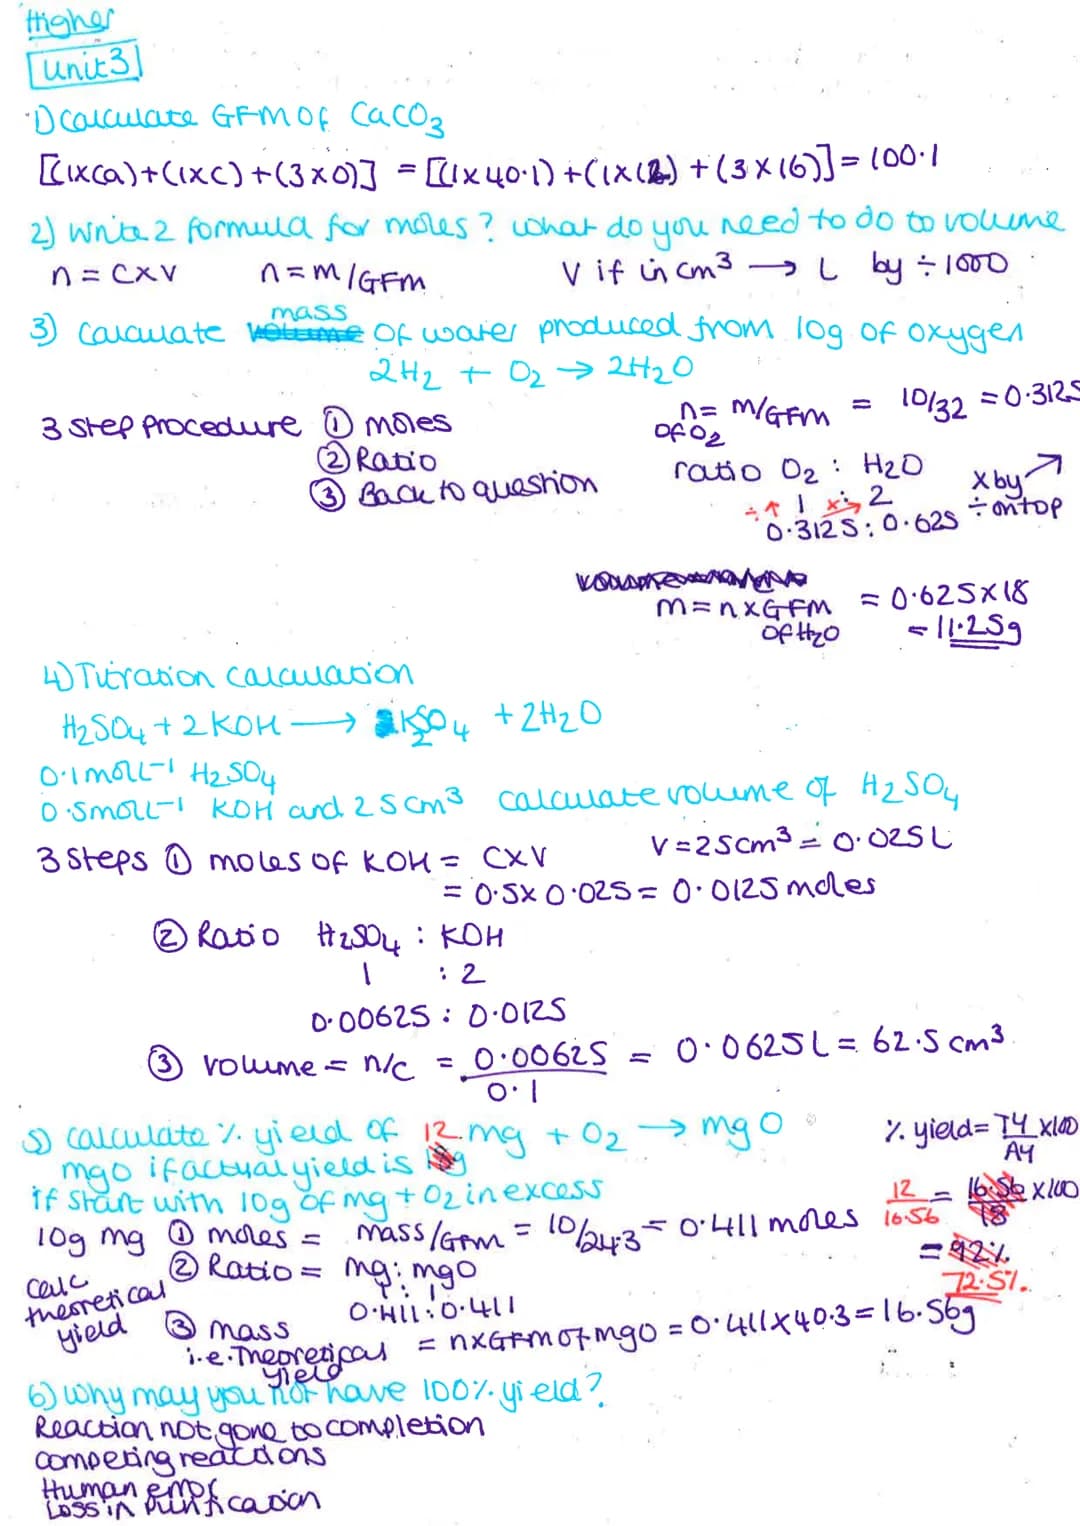 Higher
Unit 3
1) Calculate GFM of CaCO3
[(1xCa)+(1xC)+(3xO)] = [(1x40.1)+(1x12)+(3x16)] = 100.1
2) Write 2 formula for moles? What do you need to do to volume
n = C x V n = m/GFM V if in cm³ → L by ÷1000
3) Calculate mass of water produced from 10g of oxygen
2H2 + O2 → 2H2O
3 Step Procedure ① moles
② Ratio
③ Back to question
n = m/GFM = 10/32 = 0.3125
of O2
ratio O2 : H2O
1 : 2
0.3125 : 0.625
x by ↗
÷ on top
m = n x GFM = 0.625 x 18
of H2O = 11.25g
4) Titration calculation
H2SO4 + 2KOH → K2SO4 + 2H2O
0.1 mol L-1 H2SO4
0.5 mol L-1 KOH and 25cm³ calculate volume of H2SO4
3 steps ① moles of KOH = C x V V = 25cm³ = 0.025 L
= 0.5 x 0.025 = 0.0125 moles
② Ratio H2SO4 : KOH
1 : 2
0.00625 : 0.0125
③ volume = n/c = 0.00625/0.1 = 0.0625 L = 62.5 cm³
5) Calculate % yield of mg + O2 → mgO
mgO if actual yield is 12
if start with 10g of mg + O2 in excess
% yield = TY/AY x100
12/16.56 = 16.56/18 x100
= 92%
72.5%
10g mg ① moles = mass/GFM = 10/24.3 = 0.411 moles
calc theoretical yield
② Ratio = mg : mgO
1 : 1
0.411 : 0.411
③ mass = n x GFM of mgO = 0.411 x 40.3 = 16.56g
i.e. Theoretical yield
6) Why may you not have 100% yield?
Reaction not gone to completion
competing reactions
Human error
Loss in purification